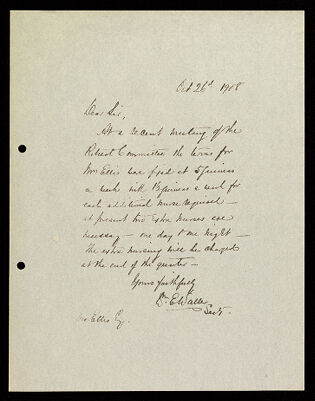 Oct 26th 1908
Dear Sir,
At a recent meeting of the
Retreat Committee the terms for
Mrs Ellis were fixed at 5 guineas
a week with 1½ guineas a week for
each additional nurse required —
at present two extra nurses are
necessary — one day & one night —
The extra nursing will be charged
at the end of the quarter —
Yours faithfully
E Waller
Sect.
Ellis Esq.